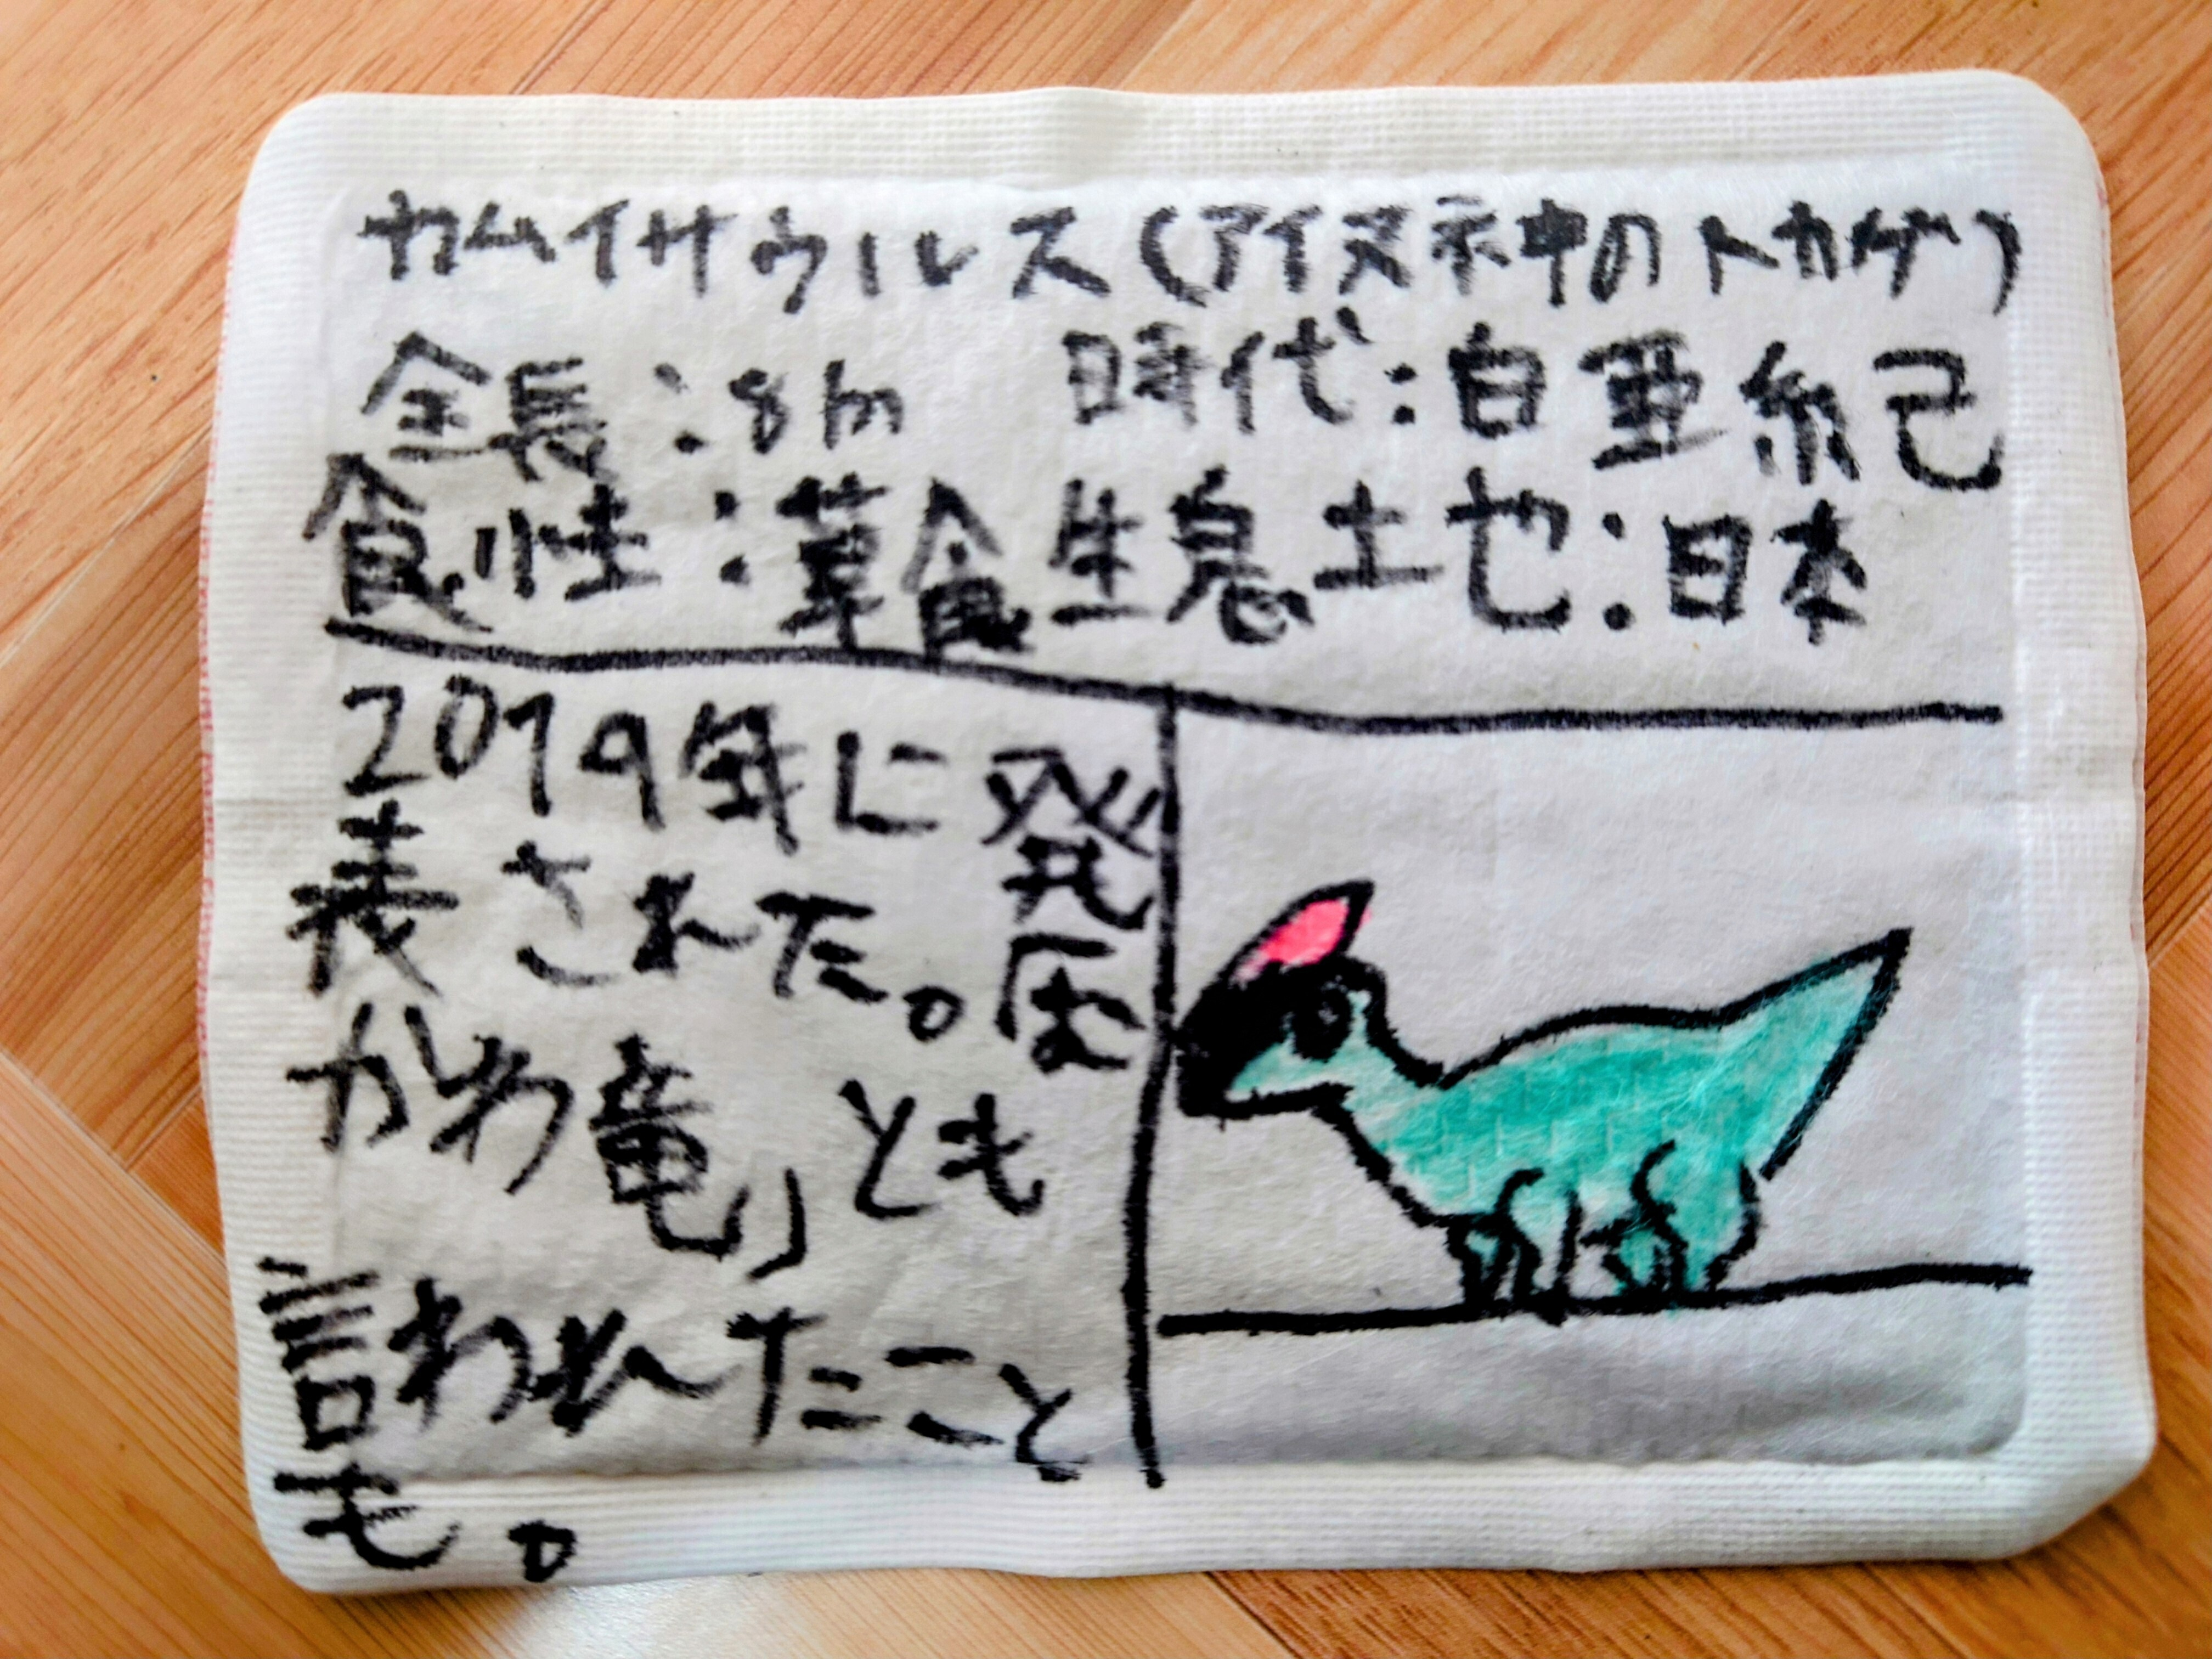 カムイサウルス(アイヌ神のトカゲ)
全長:8m 時代:白亜紀
食性:草食 生息地:日本
2019年に発
表された。「む
かわ竜」とも
言われたこと
も。